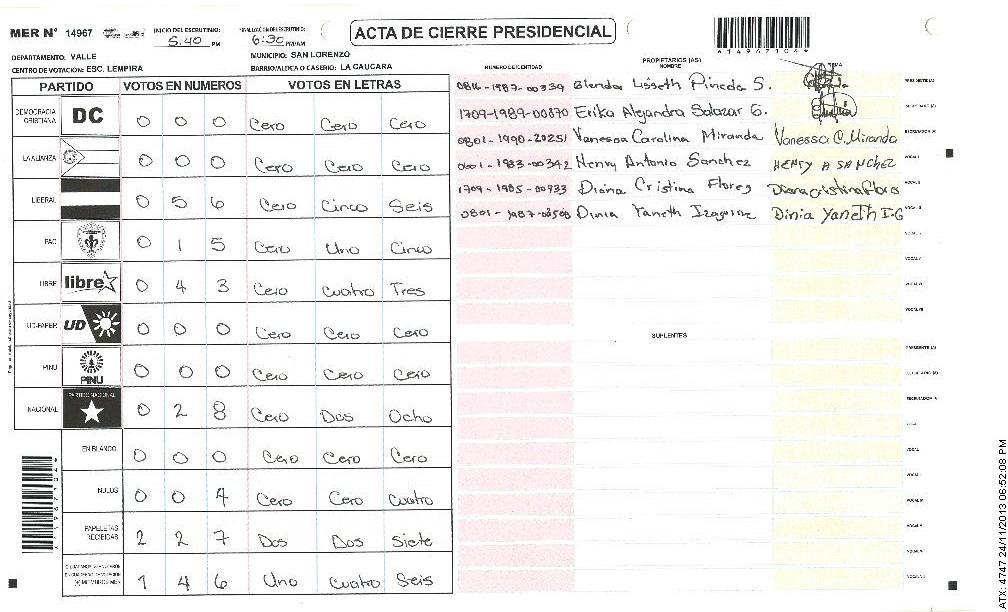 MER N° 14967
INICIO DEL ESCRUTINIO: 5:40 PM
6:30 PM/AM
ACTA DE CIERRE PRESIDENCIAL
DEPARTAMENTO: VALLE
MUNICIPIO: SAN LORENZO
CENTRO DE VOTACION: ESC. LEMPIRA
BARRIO/ALDEA O CASERIO: LA CAUCARA
PARTIDO VOTOS EN NUMEROS VOTOS EN LETRAS
DEMOCRACIA CRISTIANA DC 0 0 0 Cero Cero Cero
LA ALIANZA 0 0 0 Cero Cero Cero
LIBERAL 0 5 6 Cero Cinco Seis
PAC 0 1 5 Cero Uno Cinco
LIBRE libre 0 4 3 Cero Cuatro Tres
UD-FAPER UD 0 0 0 Cero Cero Cero
PINU PINU 0 0 0 Cero Cero Cero
NACIONAL PARTIDO NACIONAL 0 2 8 Cero Dos Ocho
EN BLANCO 0 0 0 Cero Cero Cero
NULOS 0 0 4 Cero Cero Cuatro
PAPELETAS RECIBIDAS 2 2 7 Dos Dos Siete
1 4 6 Uno Cuatro Seis
NUMERO DE IDENTIDAD
PROPIETARIOS (AS)
NOMBRE
FIRMA
Lisseth Pineda S. PRESIDENTE (A)
1709-1989-00870 Erika Alejandra Salazar G. SECRETARIO (A)
0801-1990-20251 Vanessa Carolina Miranda Vanessa C. Miranda ESCRUTADOR (A)
Henry Antonio Sanchez HENRY A SANCHEZ VOCAL I
1709-1985-00933 Diana Cristina Flores Diana Cristina Flores VOCAL II
Dinia Yaneth Izaguirre Dinia Yaneth I-G VOCAL III
SUPLENTES
PRESIDENTE (A)
SECRETARIO (A)
ESCRUTADOR (A)
ATX: 4747 24/11/2013 06:52:08 PM